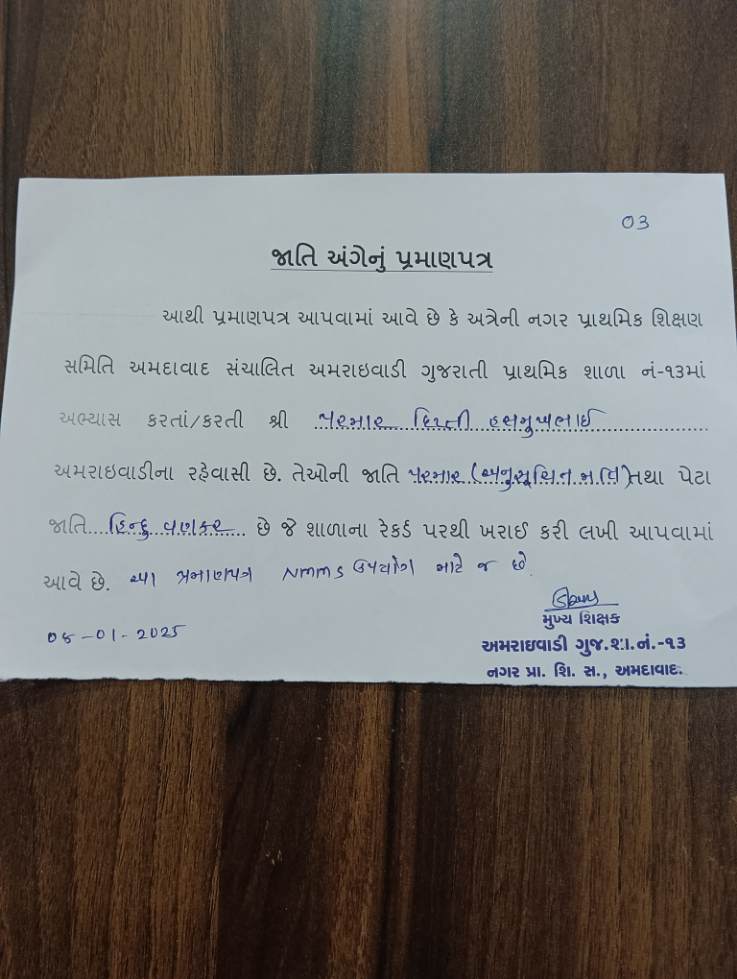 03
જાતિ અંગેનું પ્રમાણપત્ર
આથી પ્રમાણપત્ર આપવામાં આવે છે કે અત્રેની નગર પ્રાથમિક શિક્ષણ
સમિતિ અમદાવાદ સંચાલિત અમરાઇવાડી ગુજરાતી પ્રાથમિક શાળા નં-૧૩માં
અભ્યાસ કરતાં/કરતી શ્રી પરમાર હસમુખભાઈ
અમરાઇવાડીના રહેવાસી છે. તેઓની જાતિ પરમાર (અનુસૂચિત જાતિ) તથા પેટા
જાતિ હિન્દુ વણકર છે જે શાળાના રેકર્ડ પરથી ખરાઈ કરી લખી આપવામાં
આવે છે. આ પ્રમાણપત્ર NMMS ઉપયોગ માટે જ છે.
-01-2025
મુખ્ય શિક્ષક
અમરાઇવાડી ગુજ.શા.નં.-૧૩
નગર પ્રા. શિ. સ., અમદાવાદ.